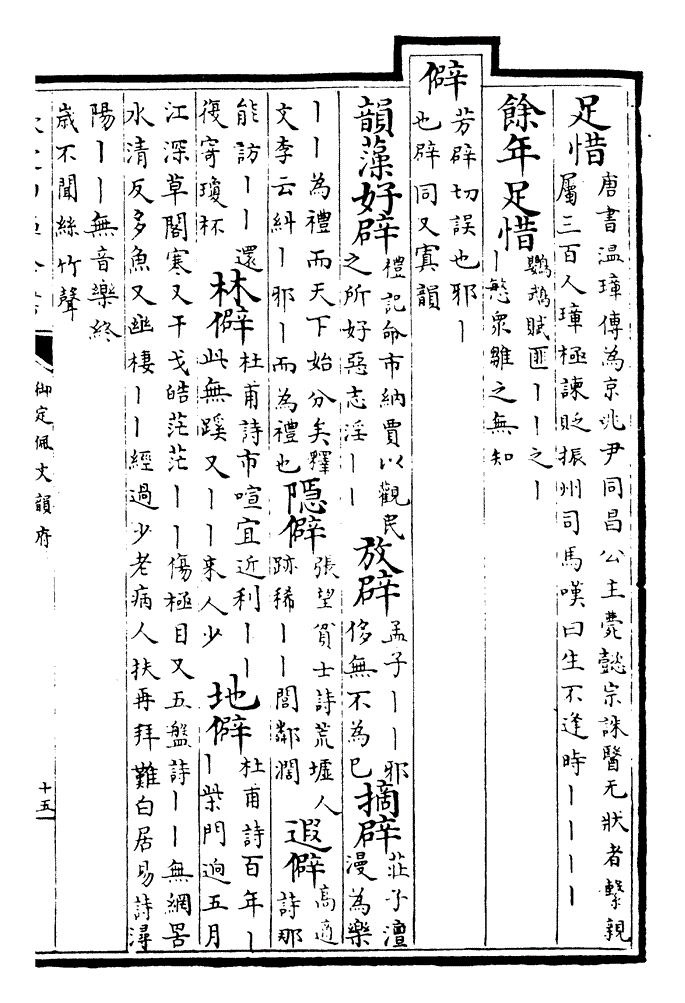 足惜
唐書温璋傳為京兆尹同昌公主薨懿宗誅醫无狀者繫親
屬三百人璋極諫貶振州司馬嘆曰生不逢時丨丨丨丨
餘年足惜
鸚鵡賦匪丨丨之丨
丨慜衆雛之無知
僻
芳辟切誤也邪丨
也辟同又寘韻
韻藻好辟
禮記命市納賈以觀民
之所好惡志淫丨丨
放辟
孟子丨丨邪
侈無不為已
摘辟
莊子澶
漫為樂
丨丨為禮而天下始分矣釋
文李云糾丨邪丨而為禮也
隱僻
張望貧士詩荒墟人
跡稀丨丨閭鄰濶
遐僻
高適
詩那
能訪丨丨還
復寄瓊杯
林僻
杜甫詩市喧宜近利丨丨
此無蹊又丨丨來人少
地僻
杜甫詩百年丨
丨柴門迥五月
江深草閣寒又干戈皓茫茫丨丨傷極目又五盤詩丨丨無網罟
水清反多魚又幽棲丨丨經過少老病人扶再拜難白居易詩潯
陽丨丨無音樂終
歲不聞絲竹聲
御定佩文韻府
十五